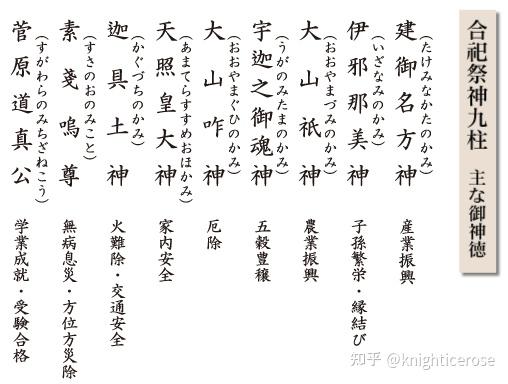 合祀祭神九柱 主な御神徳
建御名方神 産業振興
(たけみなかたのかみ)
伊邪那美神 子孫繁栄・縁結び
(いざなみのかみ)
大山祇神 農業振興
(おおやまづみのかみ)
宇迦之御魂神 五穀豊穣
(うがのみたまのかみ)
大山咋神 厄除
(おおやまぐひのかみ)
天照皇大神 家内安全
(あまてらすすめおほかみ)
迦具土神 火難除・交通安全
(かぐづちのかみ)
素戔嗚尊 無病息災・方位方災除
(すさのおのみこと)
菅原道真公 学業成就・受験合格
(すがわらのみちざねこう)
知乎 @knighticerose